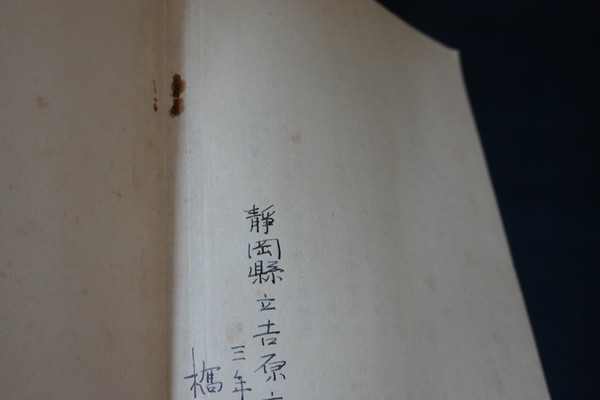 靜岡縣立吉原
三年
橋